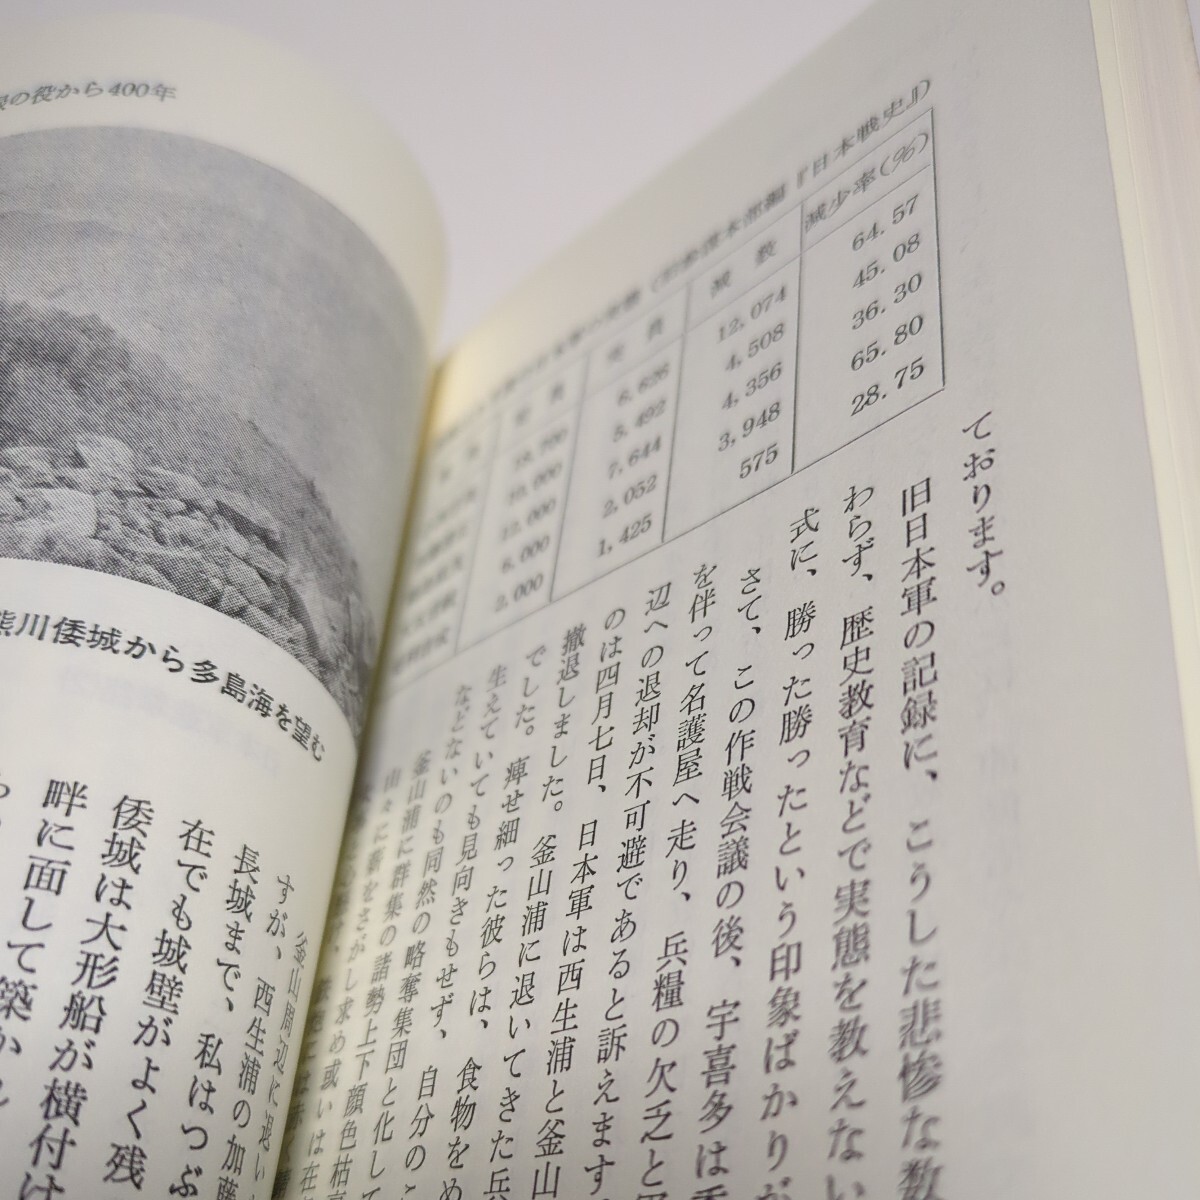 の役から400年
参謀本部編『日本戦史』)
減数
減少率(%)
18,700 6,626 12,074 64.57
10,000 5,492 4,508 45.08
12,000 7,644 4,356 36.30
6,000 2,052 3,948 65.80
2,000 1,425 575 28.75
ております。
旧日本軍の記録に、こうした悲惨な数
わらず、歴史教育などで実態を教えない
式に、勝った勝ったという印象ばかりが
さて、この作戦会議の後、宇喜多は
を伴って名護屋へ走り、兵糧の欠乏と
辺への退却が不可避であると訴えます
のは四月七日、日本軍は西生浦と釜山
撤退しました。釜山浦に退いてきた兵
でした。痺せ細った彼らは、食物をめ
生えていても見向きもせず、自分のこ
などないのも同然の略奪集団と化して
釜山浦に群集の諸勢上下顔色枯
山々に薪をさがし求め或いは在
熊川倭城から多島海を望む
釜山周辺に退い
すが、西生浦の加藤
長城まで、私はつぶ
在でも城壁がよく残
倭城は大形船が横付け
畔に面して築かれ